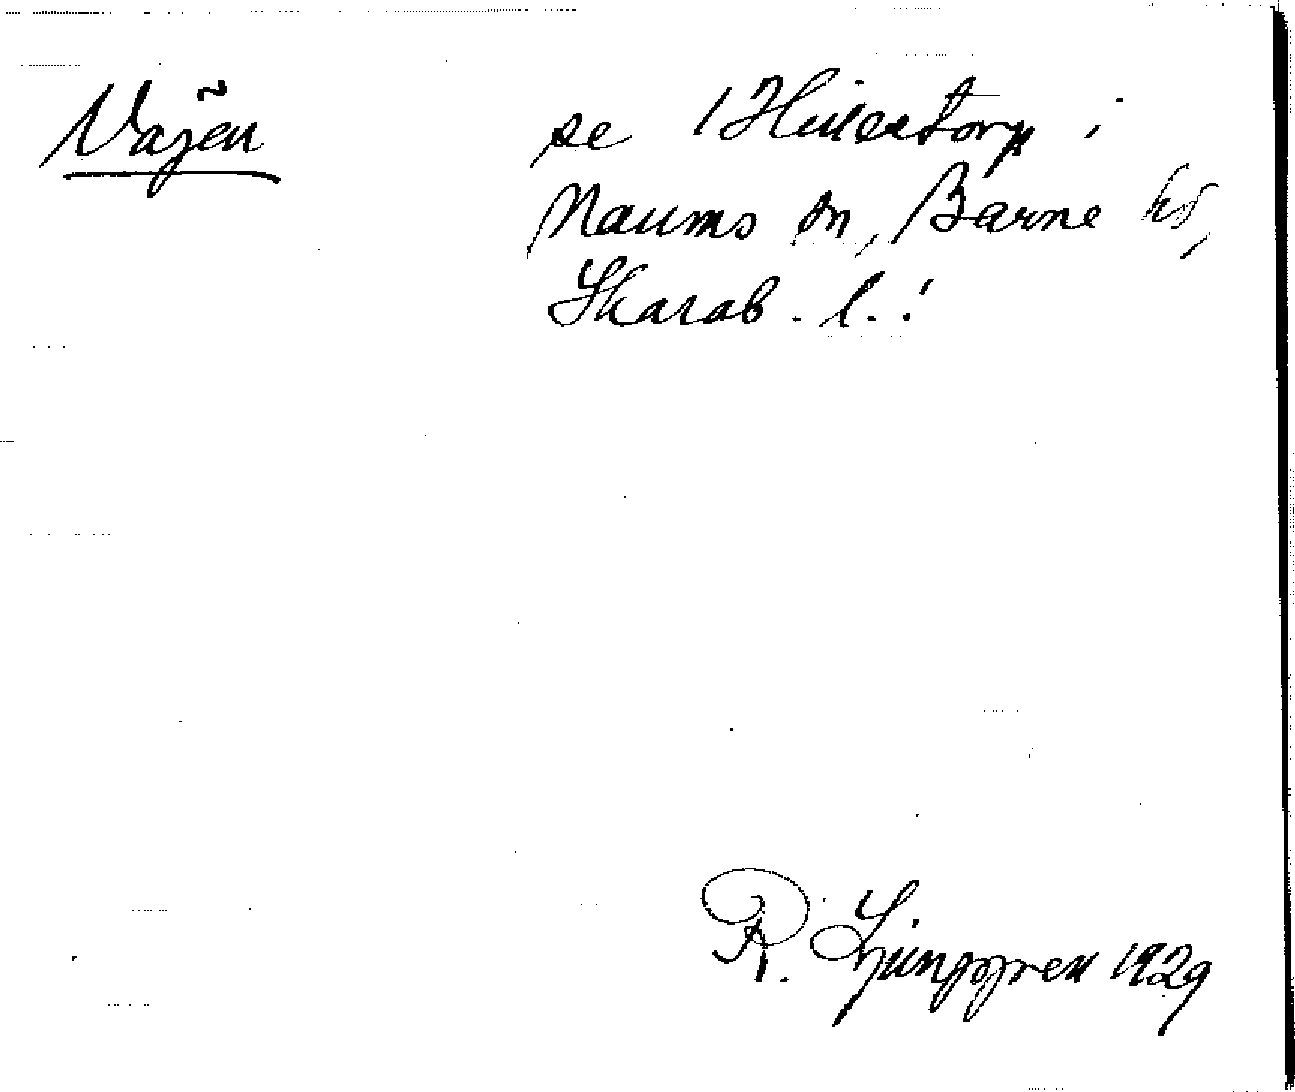 Vajen
se 1 Hulestorp i
Naums sn, Barne hd,
Skarab. l.!
R. Ljunggren 1929